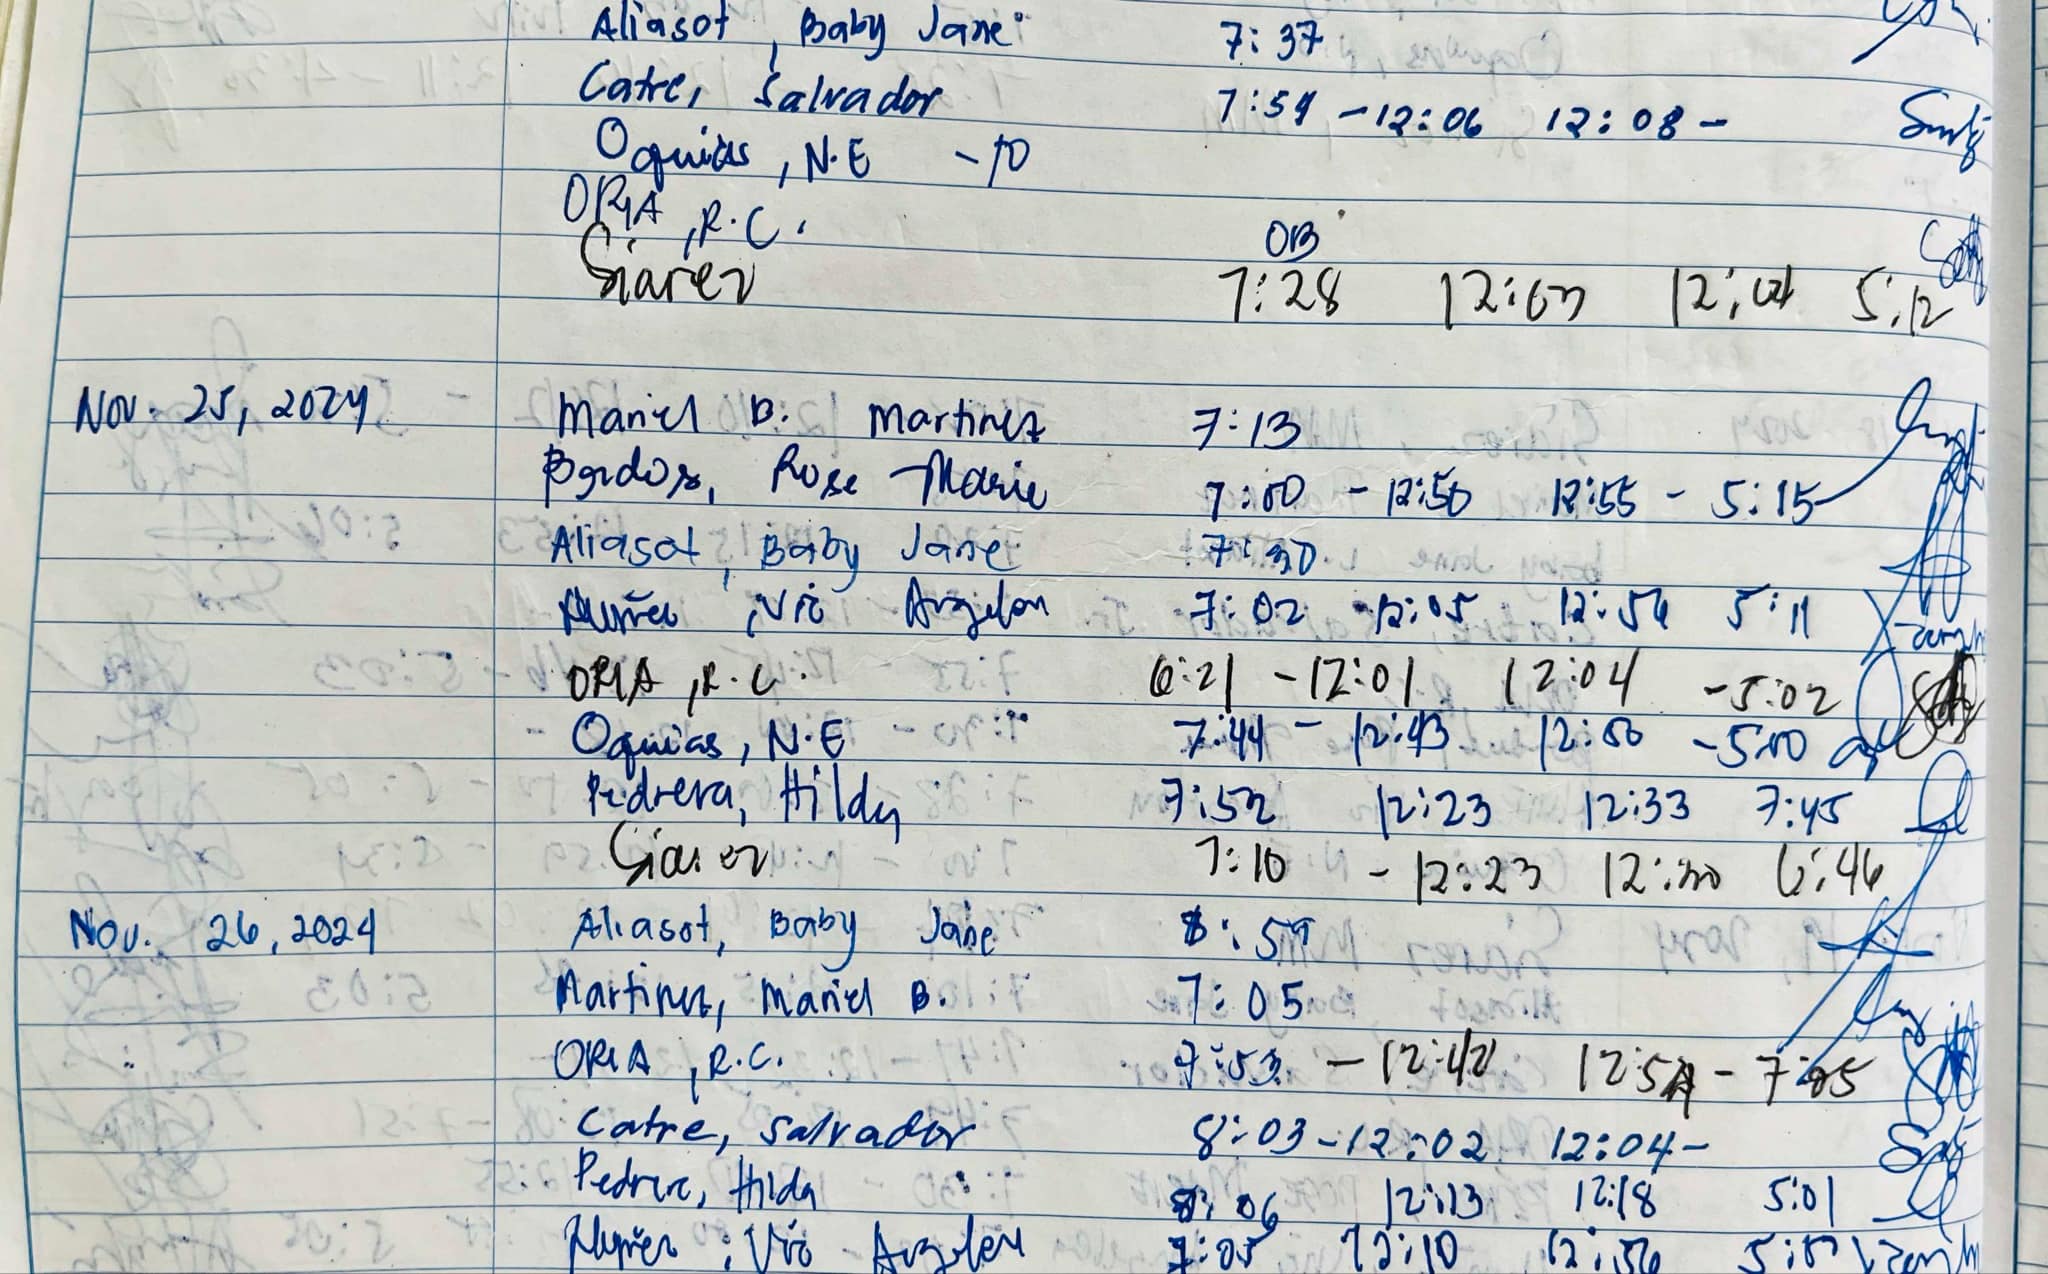 Aliasot, Baby Jane 7:37
Catre, Salvador 7:59 - 12:06 12:08 -
Oquias, N.E
ORIA, R.C. OB
Siarez 7:28 12:03 12:04 5:12
Nov. 25, 2024 Mariel B. Martinez 7:13
Bardos, Rose Marie 7:00 - 12:50 12:55 - 5:15
Aliasot, Baby Jane 7:30
Nuñez, Vic Argelon 7:02 - 12:05 12:56 5:11
ORIA, R.C. 6:21 - 12:01 12:04 - 5:02
Oquias, N.E 7:44 - 12:43 12:50 - 5:00
Pedrera, Hilda 7:52 12:23 12:33 7:45
Siarez 7:10 - 12:23 12:30 6:46
Nov. 26, 2024 Aliasot, Baby Jane 8:59
Martinez, Mariel B. 7:05
ORIA, R.C. 7:53 - 12:42 - 7:05
Catre, Salvador 8:03 - 12:02 12:04 -
Pedrera, Hilda 8:06 12:13 12:18 5:01
Nuñez, Vic Argelon 7:05 12:10 12:56